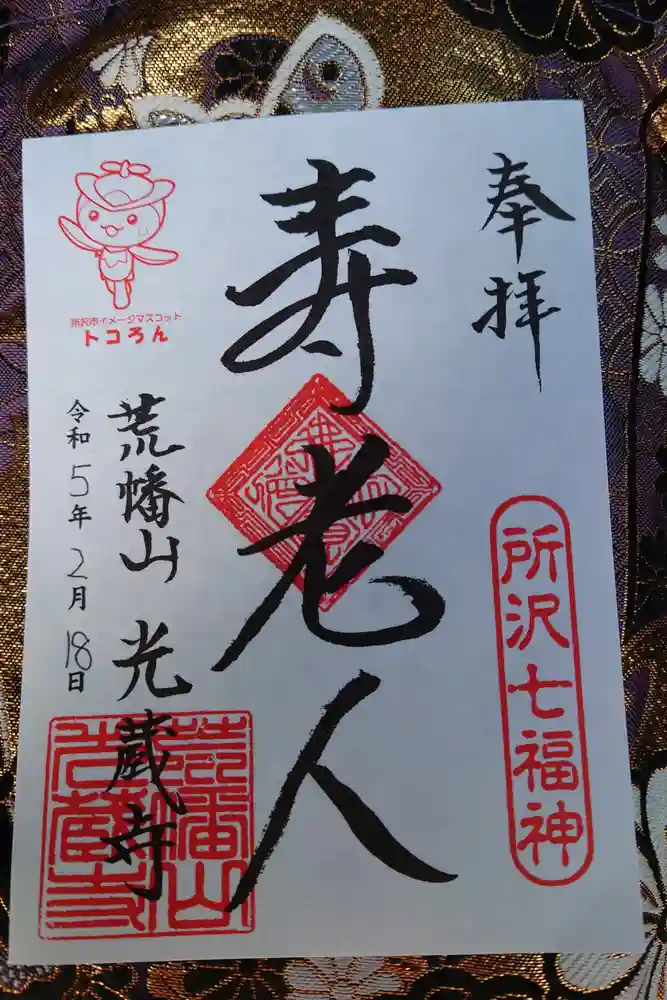 奉拝
所沢七福神
寿老人
荒幡山 光蔵寺
令和5年2月18日
所沢市イメージマスコット
トコろん
荒幡山
光蔵寺